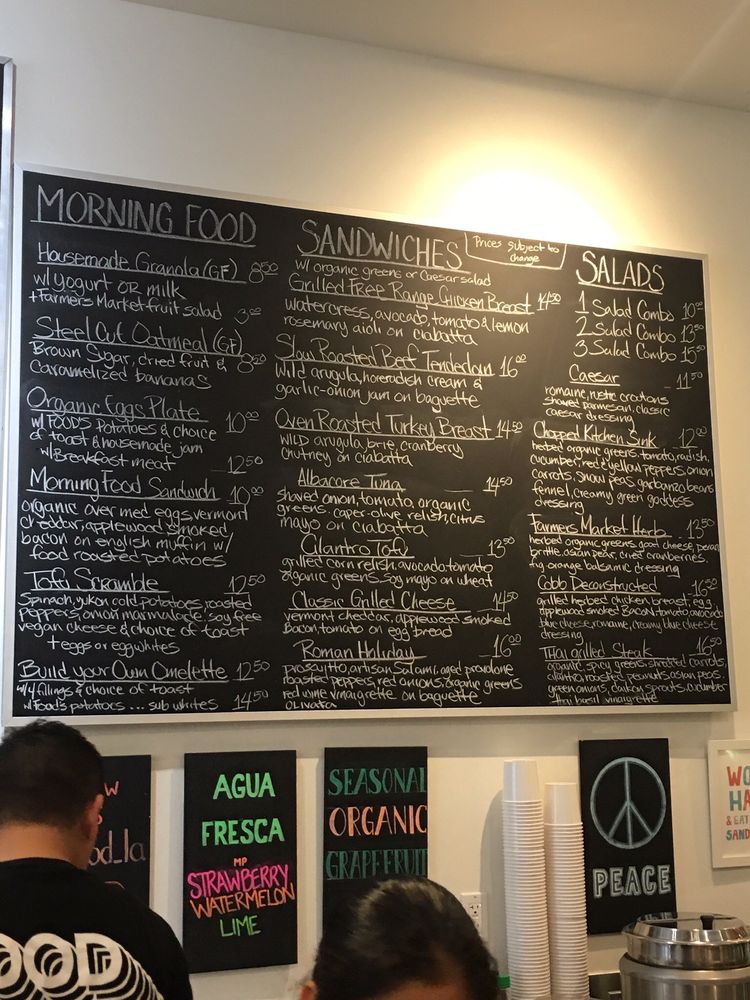 MORNING FOOD
Housemade Granola (GF) 8.50
w/ yogurt OR milk
+ Farmers Market fruit salad 3.00
Steel Cut Oatmeal (GF)
Brown Sugar, dried fruit & 8.50
caramelized bananas
Organic Eggs Plate
w/ FOOD'S potatoes & choice 10.00
of toast & housemade jam
w/ Breakfast meat 12.50
Morning Food Sandwich 10.00
organic over med eggs, vermont
cheddar, applewood smoked
bacon on english muffin w/
food roasted potatoes
Tofu Scramble 12.50
Spinach, yukon cold potatoes, roasted
peppers, onion marmalade, soy free
vegan cheese & choice of toast
+ eggs or egg whites
Build your Own Omelette 12.50
w/ 4 fillings & choice of toast
w/ Food's potatoes ... sub whites 14.50
SANDWICHES
w/ organic greens or Caesar salad
Prices subject to
change
Grilled Free Range Chicken Breast 14.50
watercress, avocado, tomato & lemon
rosemary aioli on ciabatta
Slow Roasted Beef Tenderloin 16.00
Wild arugula, horseradish cream &
garlic-onion jam on baguette
Oven Roasted Turkey Breast 14.50
WILD arugula, brie, cranberry
chutney on ciabatta
Albacore Tuna 14.50
shaved onion, tomato, organic
greens. caper-olive relish, citrus
mayo on ciabatta
Cilantro Tofu 13.50
grilled corn relish, avocado, tomato
organic greens, soy mayo on wheat
Classic Grilled Cheese 14.50
vermont cheddar, applewood smoked
Bacon, tomato on egg bread
Roman Holiday 16.00
proscuitto, artisan Salami, aged provolone
roasted peppers, red onions, organic greens
red wine vinaigrette on baguette
OLIVATA
SALADS
1 Salad Combo 10.00
2 Salad Combo 13.50
3 Salad Combo 15.50
Caesar 11.50
romaine, rustic croutons
shaved parmesan, classic
caesar dressing
Chopped Kitchen Sink 12.00
herbed organic greens, tomato, radish,
cucumber, red & yellow peppers, onion
carrots, snow peas, garbanzo beans
fennel, creamy green goddess
dressing
Farmers Market Herb 13.50
herbed organic greens, goat cheese, pecan
brittle, asian pear, dried cranberries,
fig orange balsamic dressing
Cobb Deconstructed 16.50
grilled herbed chicken breast, egg,
applewood smoked Bacon, tomato, avocado
blue cheese, romaine, creamy blue cheese
dressing
Thai grilled Steak 16.50
organic, spicy greens, shredded carrots,
cilantro, roasted peanuts, asian peas,
green onions, daikon sprouts, cucumber
thai basil vinaigrette
AGUA
FRESCA
MP
STRAWBERRY
WATERMELON
LIME
SEASONAL
ORGANIC
GRAPEFRUIT
PEACE
& EAT
SAND
OOD